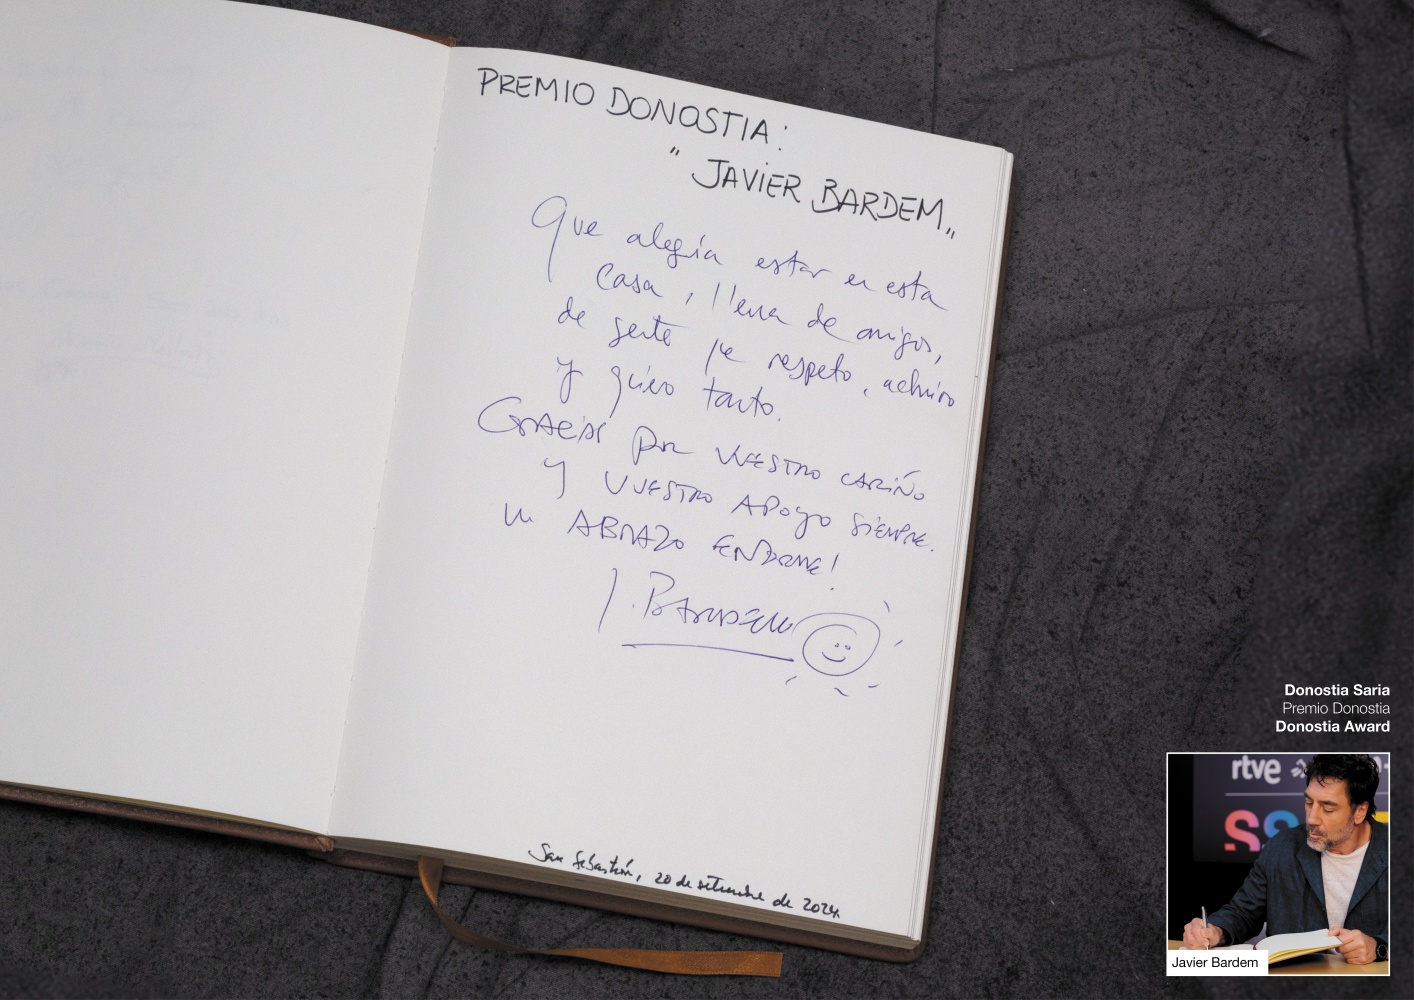 PREMIO DONOSTIA:
"JAVIER BARDEM"
Que alegría estar en esta
casa, llena de amigos,
de gente que respeto, admiro
y quiero tanto.
GRACIAS POR VUESTRO CARIÑO
Y VUESTRO APOYO SIEMPRE.
UN ABRAZO ENORME!
J. BARDEM
San Sebastián, 20 de setiembre de 2024.
Donostia Saria
Premio Donostia
Donostia Award
rtve
SS
Javier Bardem